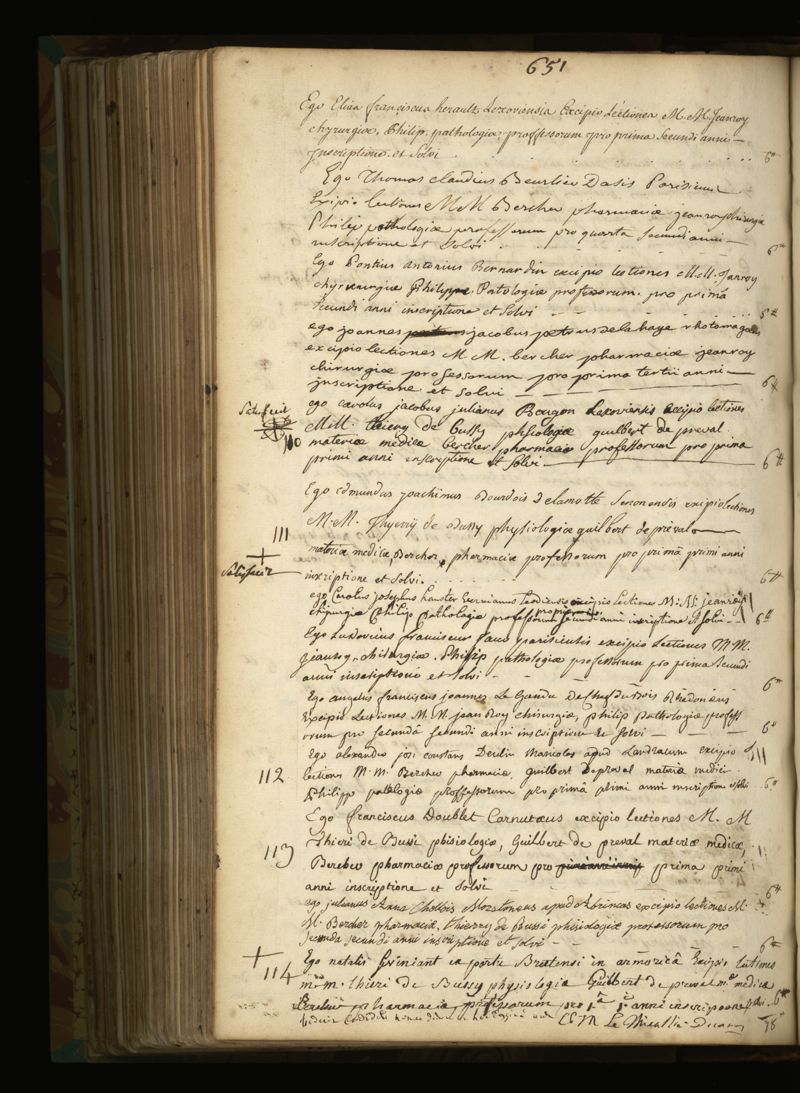 651
Ego Elias franciscus herault Lexoviensis Excipio Lectiones M. M. Jeanroy
chyrurgiæ, Philip. pathologiæ, proffessorum pro prima secundi anni
Inscriptione et Solvi . . . . 6#
Ego Thomas claudius Beurlier Dasis Parisinus
Exipio lectiones M M Bercher pharmaciæ jeanroy chirurgiæ
Philip pathologiæ professorum pro quarta secundi anni
inscriptione et Solvi 6#
Ego Pontius Antonius Bernardin excipio lectiones M. M. Janroy
chyrurgiæ Philippe. Patologiæ professorum. pro primâ
secundi anni inscriptione et solvi 6#
ego joannes jacobus petrus delahaye rhotomagæus
excipio lectiones M M. bercher pharmaciæ jeanroy
chirurgiæ professorum pro prima tertii anni
inscriptione et solvi 6#
ego carolus jacobus julianus Bougon Lexoviensis excipio lectiones
110 M.M. thiery de bussy phsiologiæ guilbert de preval
materiæ medicæ bercher pharmaciæ professorum pro prima
primi anni inscriptione et solvi 6#
Ego Edmundus joachimus Bourdois Delamotte Senonensis excipio lectiones
111 M. M. Thyerrÿ de Bussy physiologiæ guilbert de préval
materiæ medicæ, Bercher, pharmaciæ professorum pro primâ primi anni
Satisfecit inscriptione et Solvi. 6#
ego Carolus josephus Leodiensis excipio lectiones M. M. jeanroy
chirurgiæ Philip Pathologiæ professorum pro prima secundi anni inscriptione et solvi 6#
Ego Ludovicus franciscus faur parisiensis excipio lectiones M M.
jeanroy chirurgiæ. Philip pathologiæ professorum pro prima secundi
anni inscriptione et solvi 6#
Ego angelus franciscus joannes Le Gendu Rhedonensis
Excipio Lectiones M. M. jean Roy chirurgiæ, philip Pathologiæ professorum
pro secundâ secundi anni inscriptione Et solvi 6#
Ego alexander constans apud excipio
112 lectiones M. M. Bercher pharmaciæ, guilbert Depreval materiæ medicæ
Philipp patologiæ proffessorum pro primâ primi anni inscriptione et solvi 6#
Ego franciscus Doublet Carnutæus excipio lectiones M. M
113 Thieri de Bussi phisiologiæ, Guilbert de preval materiæ medicæ,
Bercher pharmaciæ professorum pro prima primi
anni inscriptione et solvi 6#
ego julianus Anna apud Abrincas excipio lectiones M.
M. Bercher pharmaciæ, thierry de Bussi phisiologiæ professorum pro
secunda secundi anni inscriptione et solvi 6#
Ego natalis Guiniant in armoricâ Excipio lectiones
114 m. m. thieri de Bussy physiologiæ Guilbert de preval m.æ medicæ
Bercher pharmaciæ professorum pro 1â 1i anni inscriptione solvi 6#
LE M Le Thieullier Decanus 78#